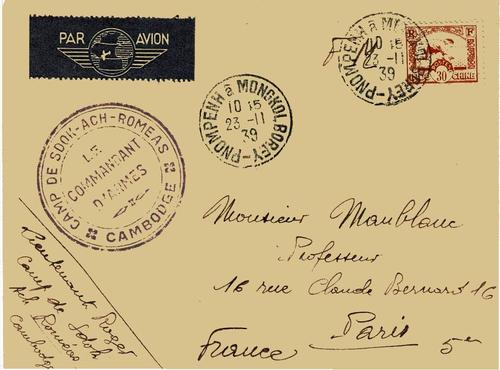 PAR AVION
PNOMPENH à MONGKOL BOREY
10 15
23 -11
39
PNOMPENH à MONGKOL BOREY
10 15
23 -11
39
R F
30 C
CHINE
CAMP DE SDOK-ACH-ROMEAS
LE
COMMANDANT
D'ARMES
CAMBODGE
Monsieur Manblanc
Professeur
16 rue Claude Bernard 16
Paris 5e
France
Lieutenant Roger
Camp de Sdok
Ach Roméas
Cambodge